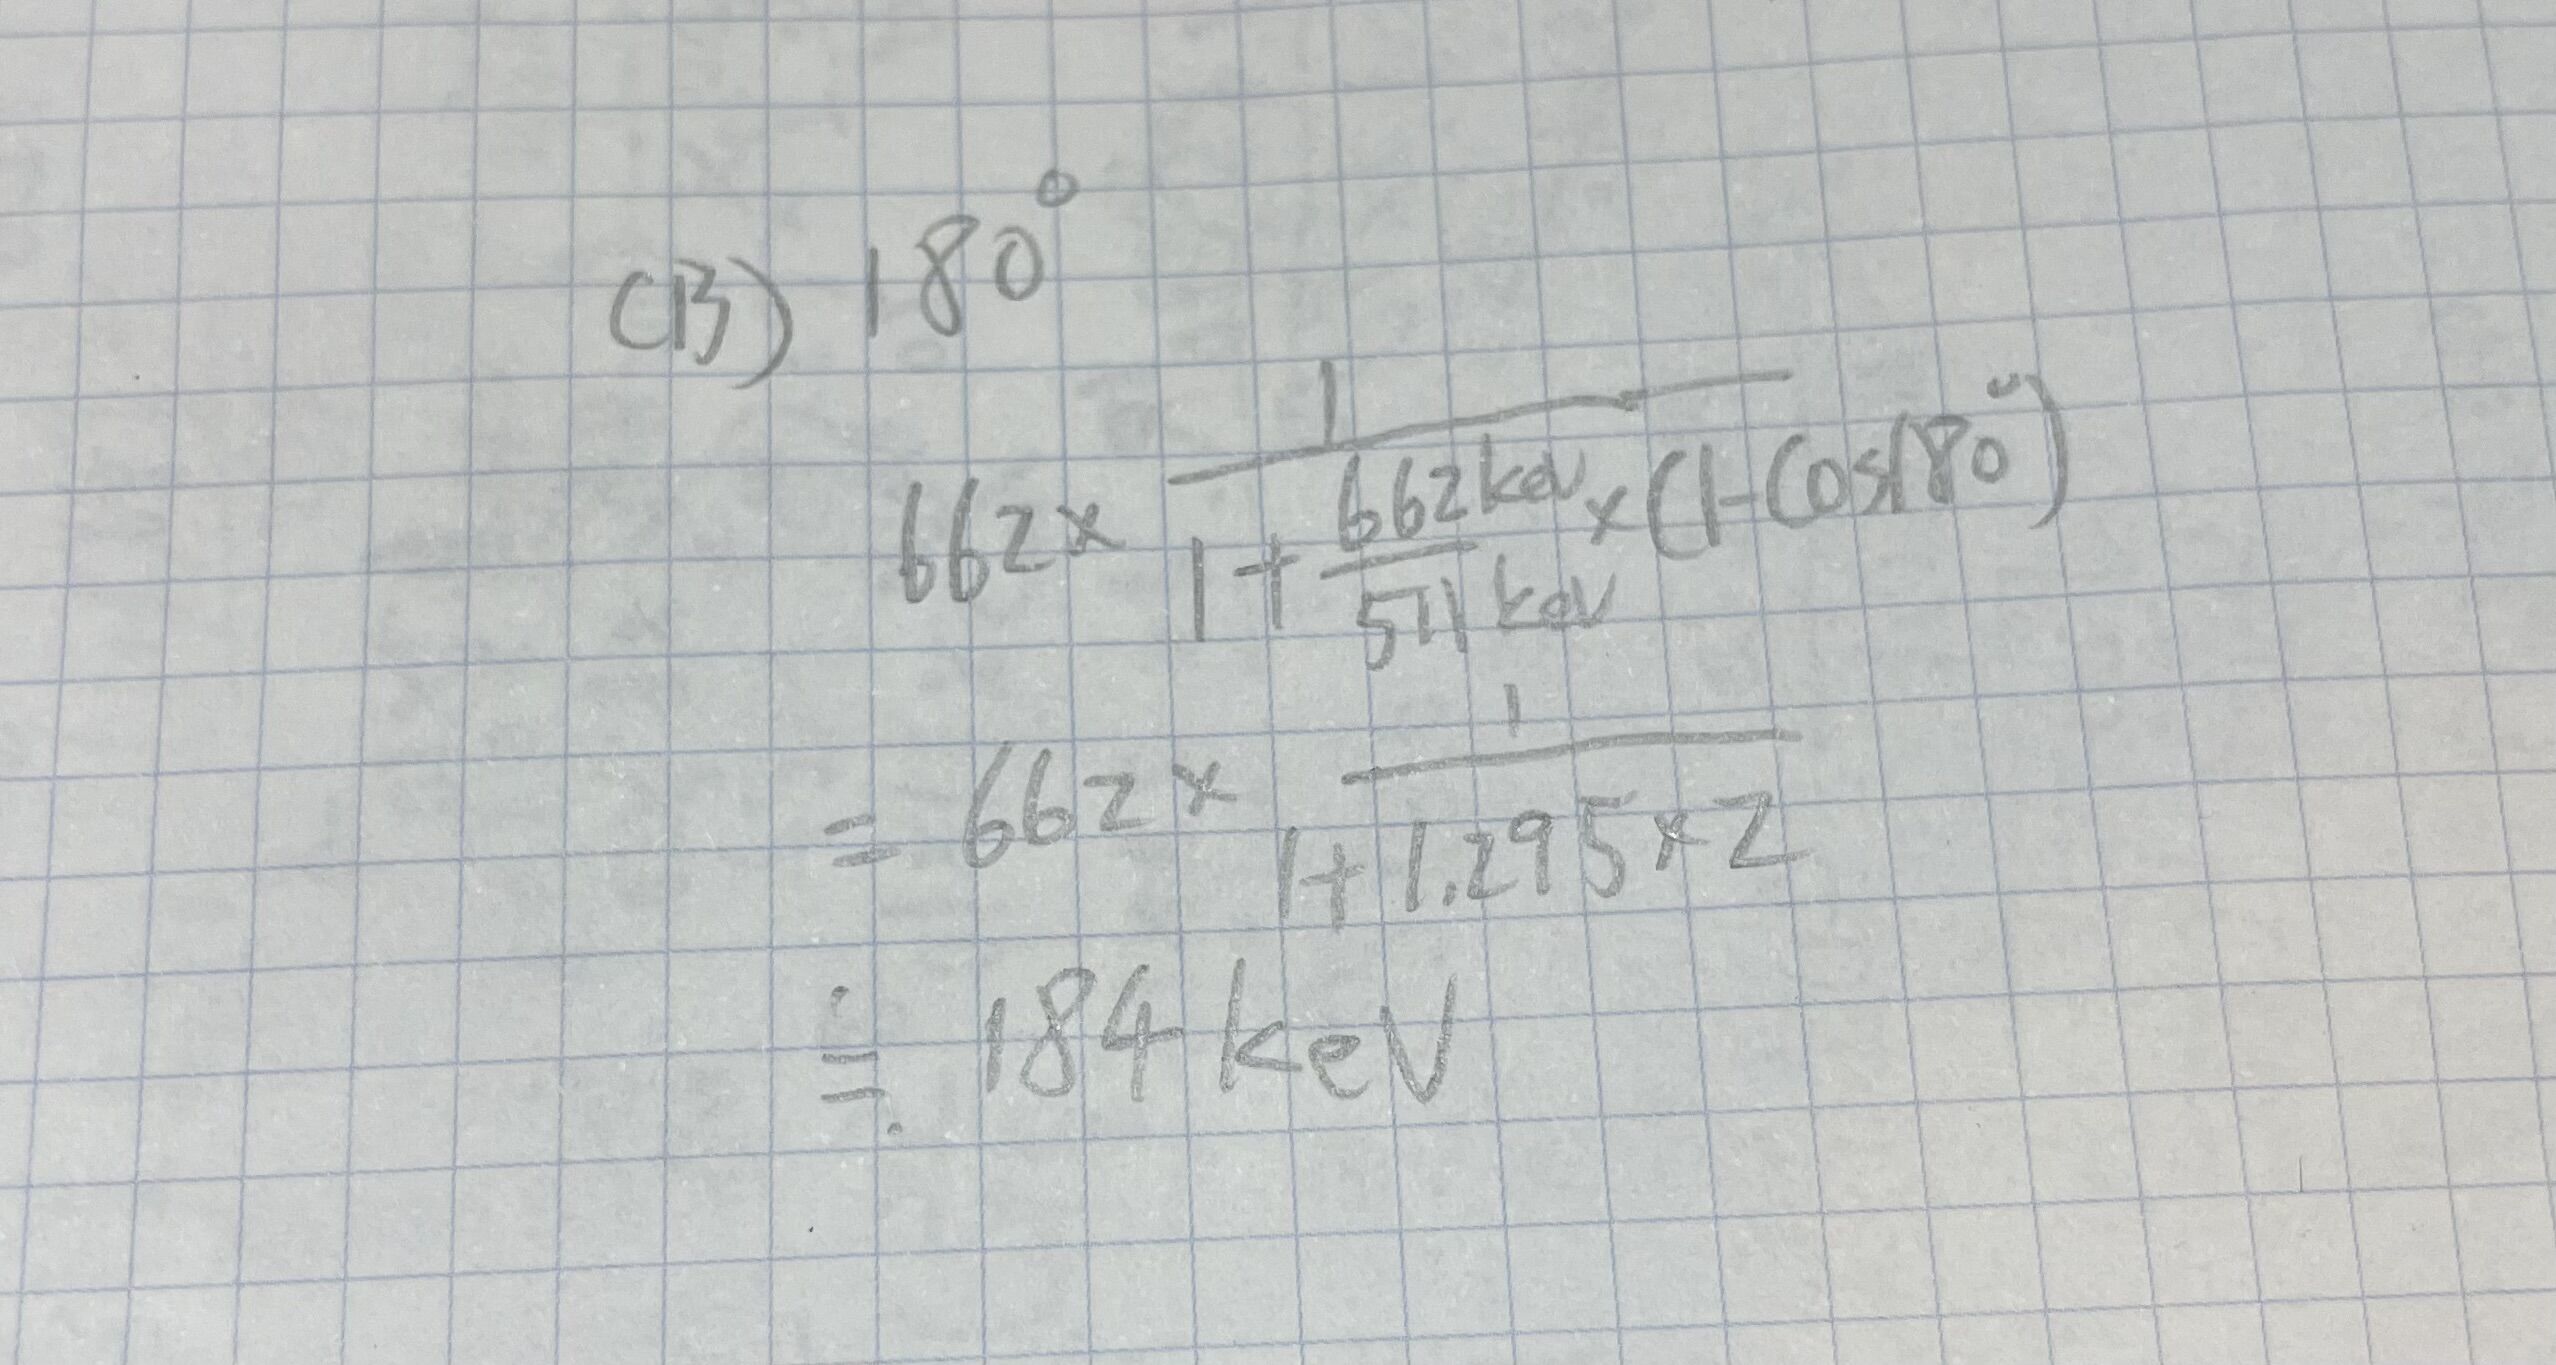 (B) 180°
662 × 1 / (1 + 662 keV / 511 keV × (1 - Cos180°))
= 662 × 1 / (1 + 1.295 × 2)
≒ 184 keV